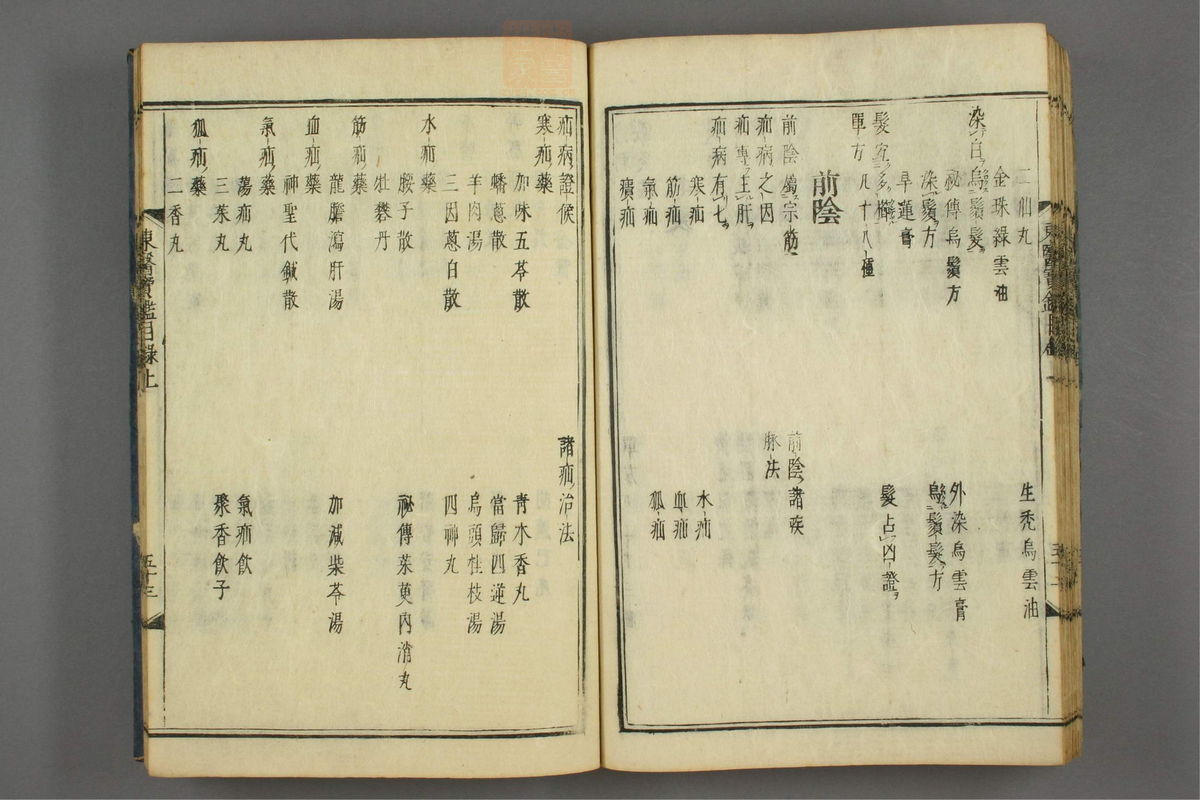 二仙丸
生禿烏雲油
金珠綠雲油
染白烏鬚髮
祕傳烏鬚方
外染烏雲膏
染鬚方
烏鬚髮方
旱蓮膏
髮宜多櫛
髮占凶證
單方凡十八種
前陰
前陰屬宗筋
前陰諸疾
疝病之因
脉法
疝專主肝
疝病有七
寒疝
水疝
筋疝
血疝
氣疝
狐疝
㿗疝
東醫寶鑑目錄
疝病證候
諸疝治法
寒疝藥
加味五苓散
青木香丸
蟠葱散
當歸四逆湯
羊肉湯
烏頭桂枝湯
三因蔥白散
四神丸
水疝藥
腰子散
祕傳茱萸內消丸
牡礬丹
筋疝藥
龍膽瀉肝湯
加減柴苓湯
血疝藥
神聖代鍼散
氣疝藥
蕩疝丸
氣疝飮
三茱丸
聚香飮子
狐疝藥
二香丸
東醫寶鑑目錄上
五十三